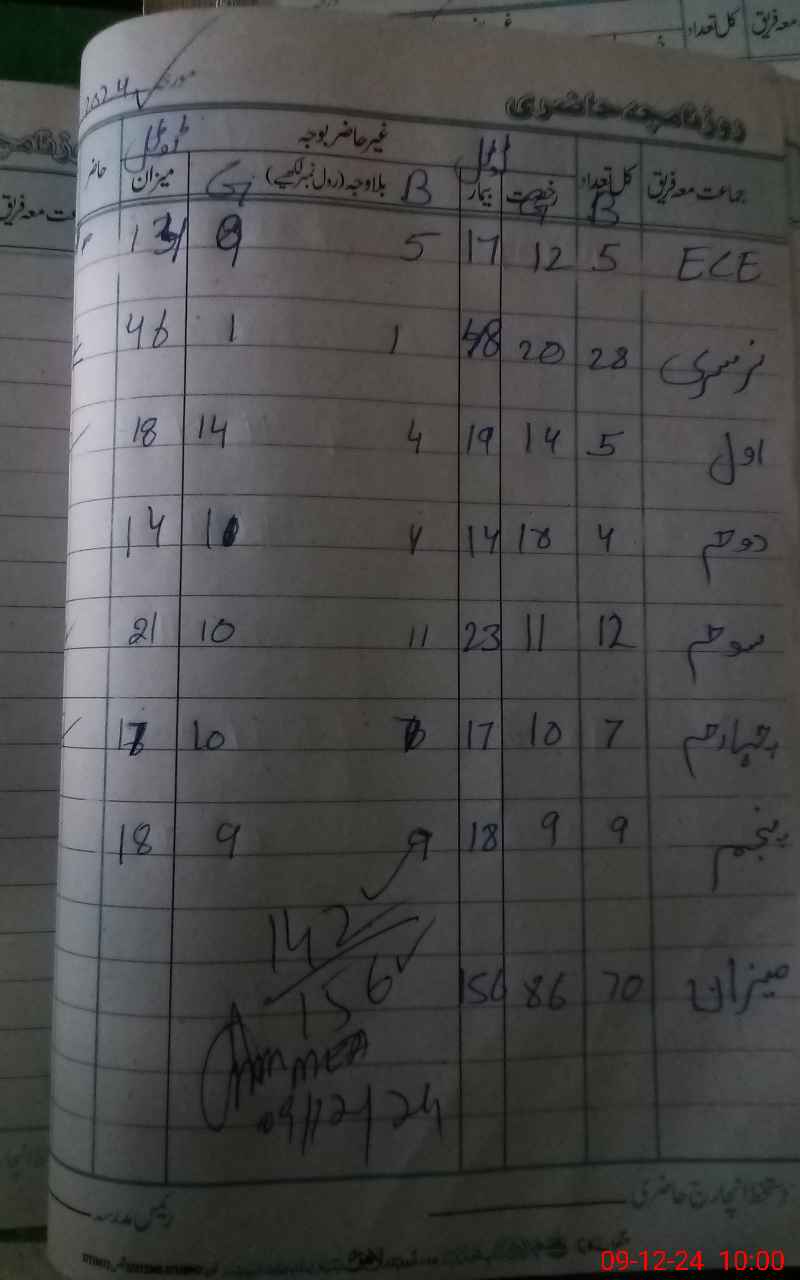 معہ فریق کل تعداد
2024
روزنامچہ حاضری
جماعت معہ فریق کل تعداد رخصت بیمار غیر حاضر بوجہ بلاوجہ (رول نمبر لکھیے) میزان حاضر
B G B G
ECE 5 12 17 5 9
نرسری 28 20 48 1 1 46
اول 5 14 19 4 14 18
دوم 4 10 14 4 10 14
سوم 12 11 23 11 10 21
چہارم 7 10 17 7 10 17
پنجم 9 9 18 9 9 18
142
میزان 70 86 156
156
09/12/24
دستخط انچارج حاضری رئیس مدرسہ
09-12-24 10:00